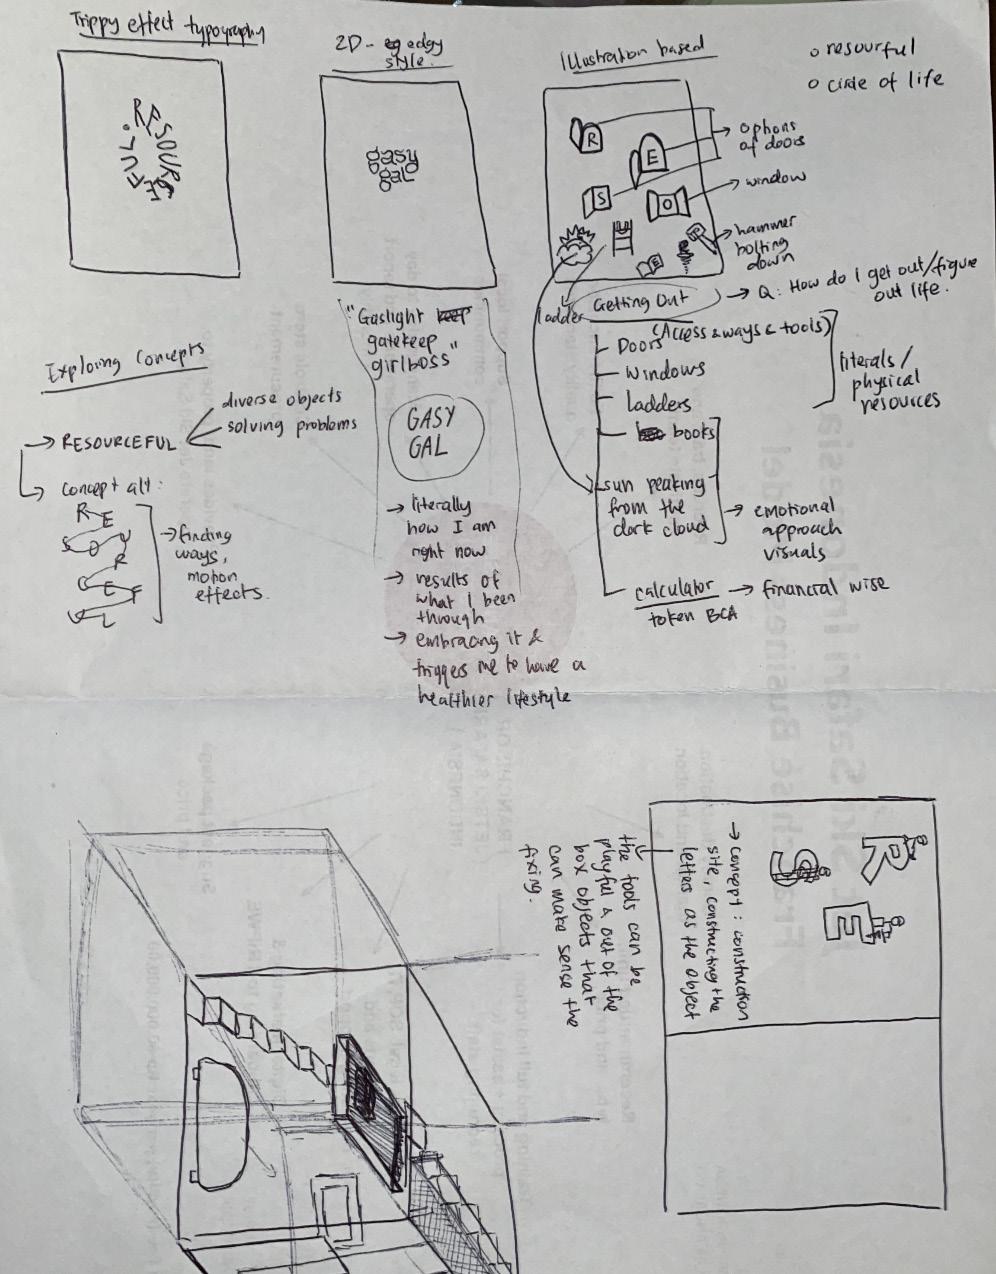 Trippy effect typography
RESOURCEFUL.
2D - edgy
style.
gasy
gal
Illustration based
R
E
S
O
E
options
of doors
window
hammer
bolting
down
ladder
o resourful
o circle of life
Getting Out → Q: How do I get out/figure
out life.
Doors (Access & ways & tools)
Windows
Ladders
books
literals/
physical
resources
sun peaking
from the
dark cloud
→ emotional
approach
visuals
calculator → financial wise
token BCA
"Gaslight
gatekeep
girlboss"
GASY
GAL
→ literally
how I am
right now
→ results of
what I been
through
→ embracing it &
triggers me to have a
healthier lifestyle
Exploring Concepts
→ RESOURCEFUL
diverse objects
solving problems
→ concept alt:
R E
S O U
R
C E F
U L
→ finding
ways,
motion
effects.
R
S
E
→ concept : construction
site, constructing the
letters as the object
the tools can be
playful & out of the
box objects that
can make sense the
fixing.